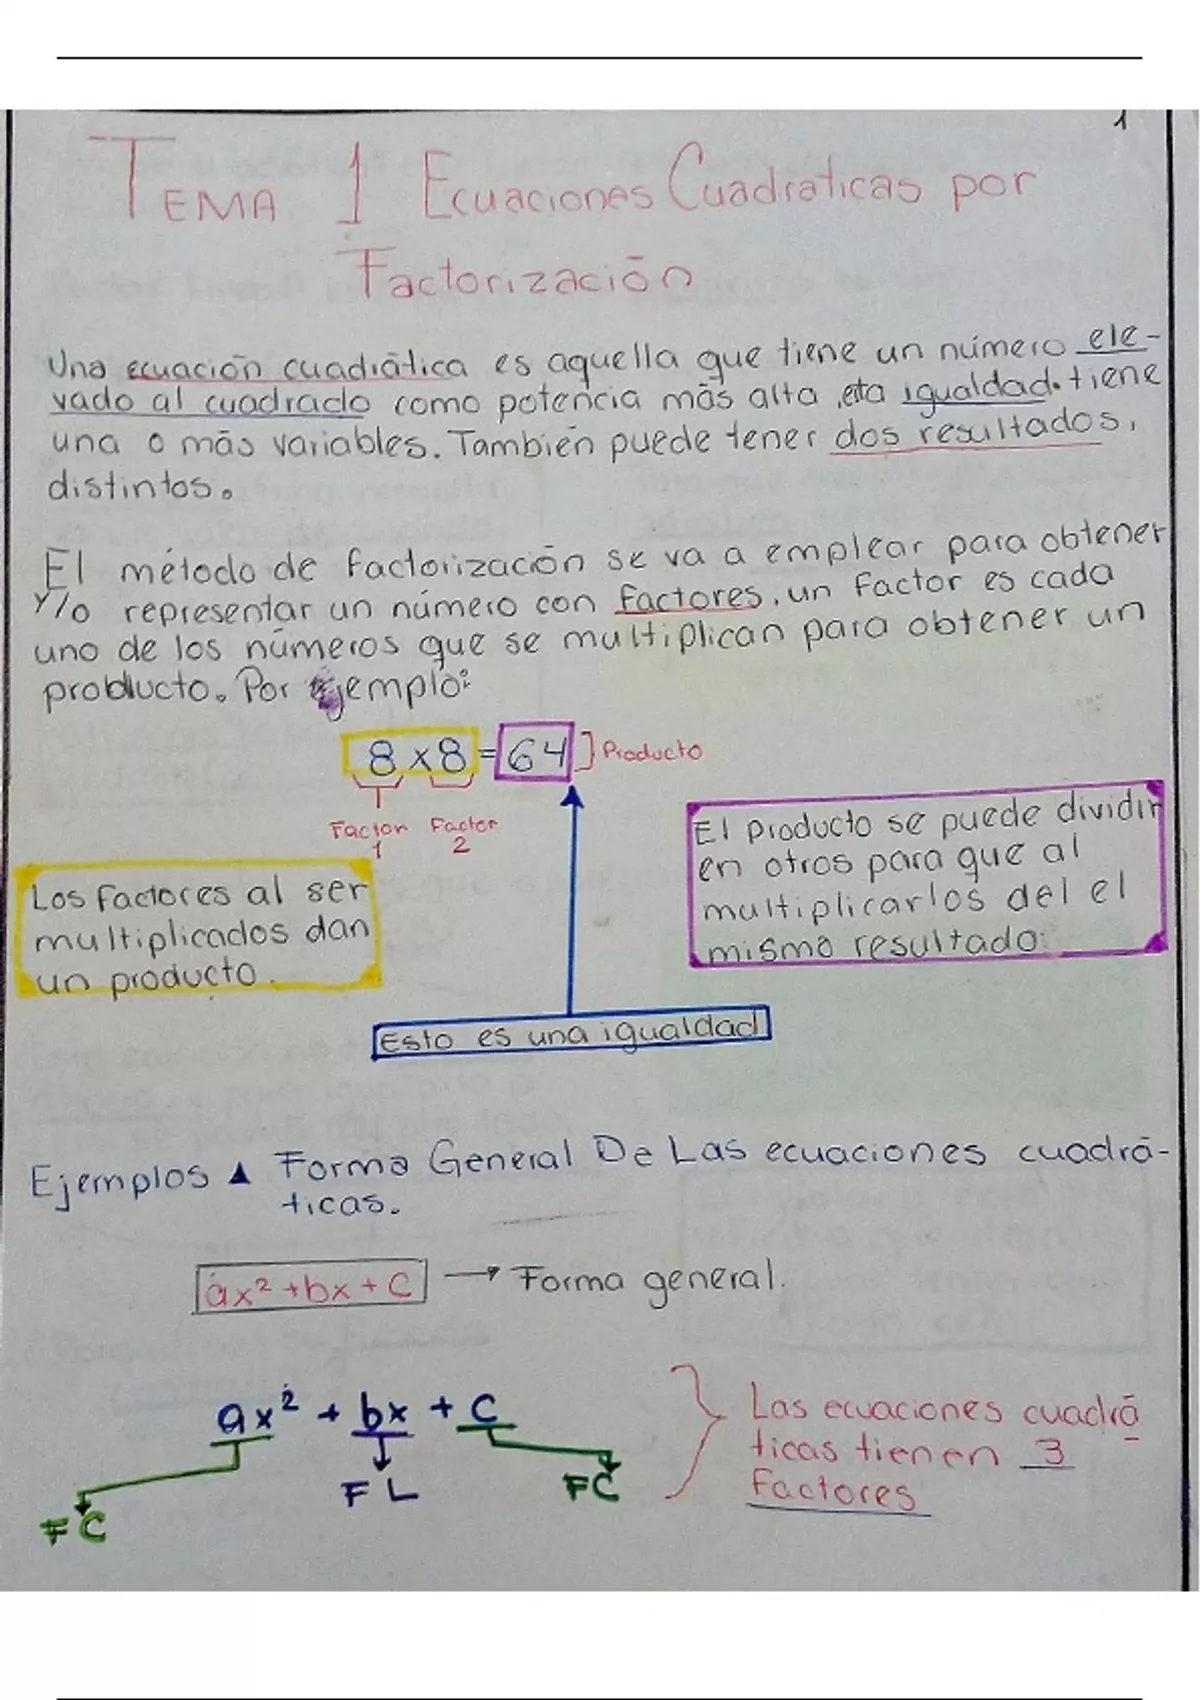 1
TEMA 1 Ecuaciones Cuadraticas por
Factorización
Una ecuación cuadrática es aquella que tiene un número ele-
vado al cuadrado como potencia más alta, esta igualdad. tiene
una o más variables. También puede tener dos resultados,
distintos.
El método de factorización se va a emplear para obtener
y/o representar un número con factores, un factor es cada
uno de los números que se multiplican para obtener un
producto. Por ejemplo:
8 x 8 = 64 ] Producto
Factor Factor
1 2
El producto se puede dividir
en otros para que al
multiplicarlos del el
mismo resultado.
Los factores al ser
multiplicados dan
un producto.
Esto es una igualdad
Ejemplos ▲ Forma General De Las ecuaciones cuadrá-
ticas.
ax² + bx + C → Forma general.
ax² + bx + C
FC FL FC
Las ecuaciones cuadrá
ticas tienen 3
Factores